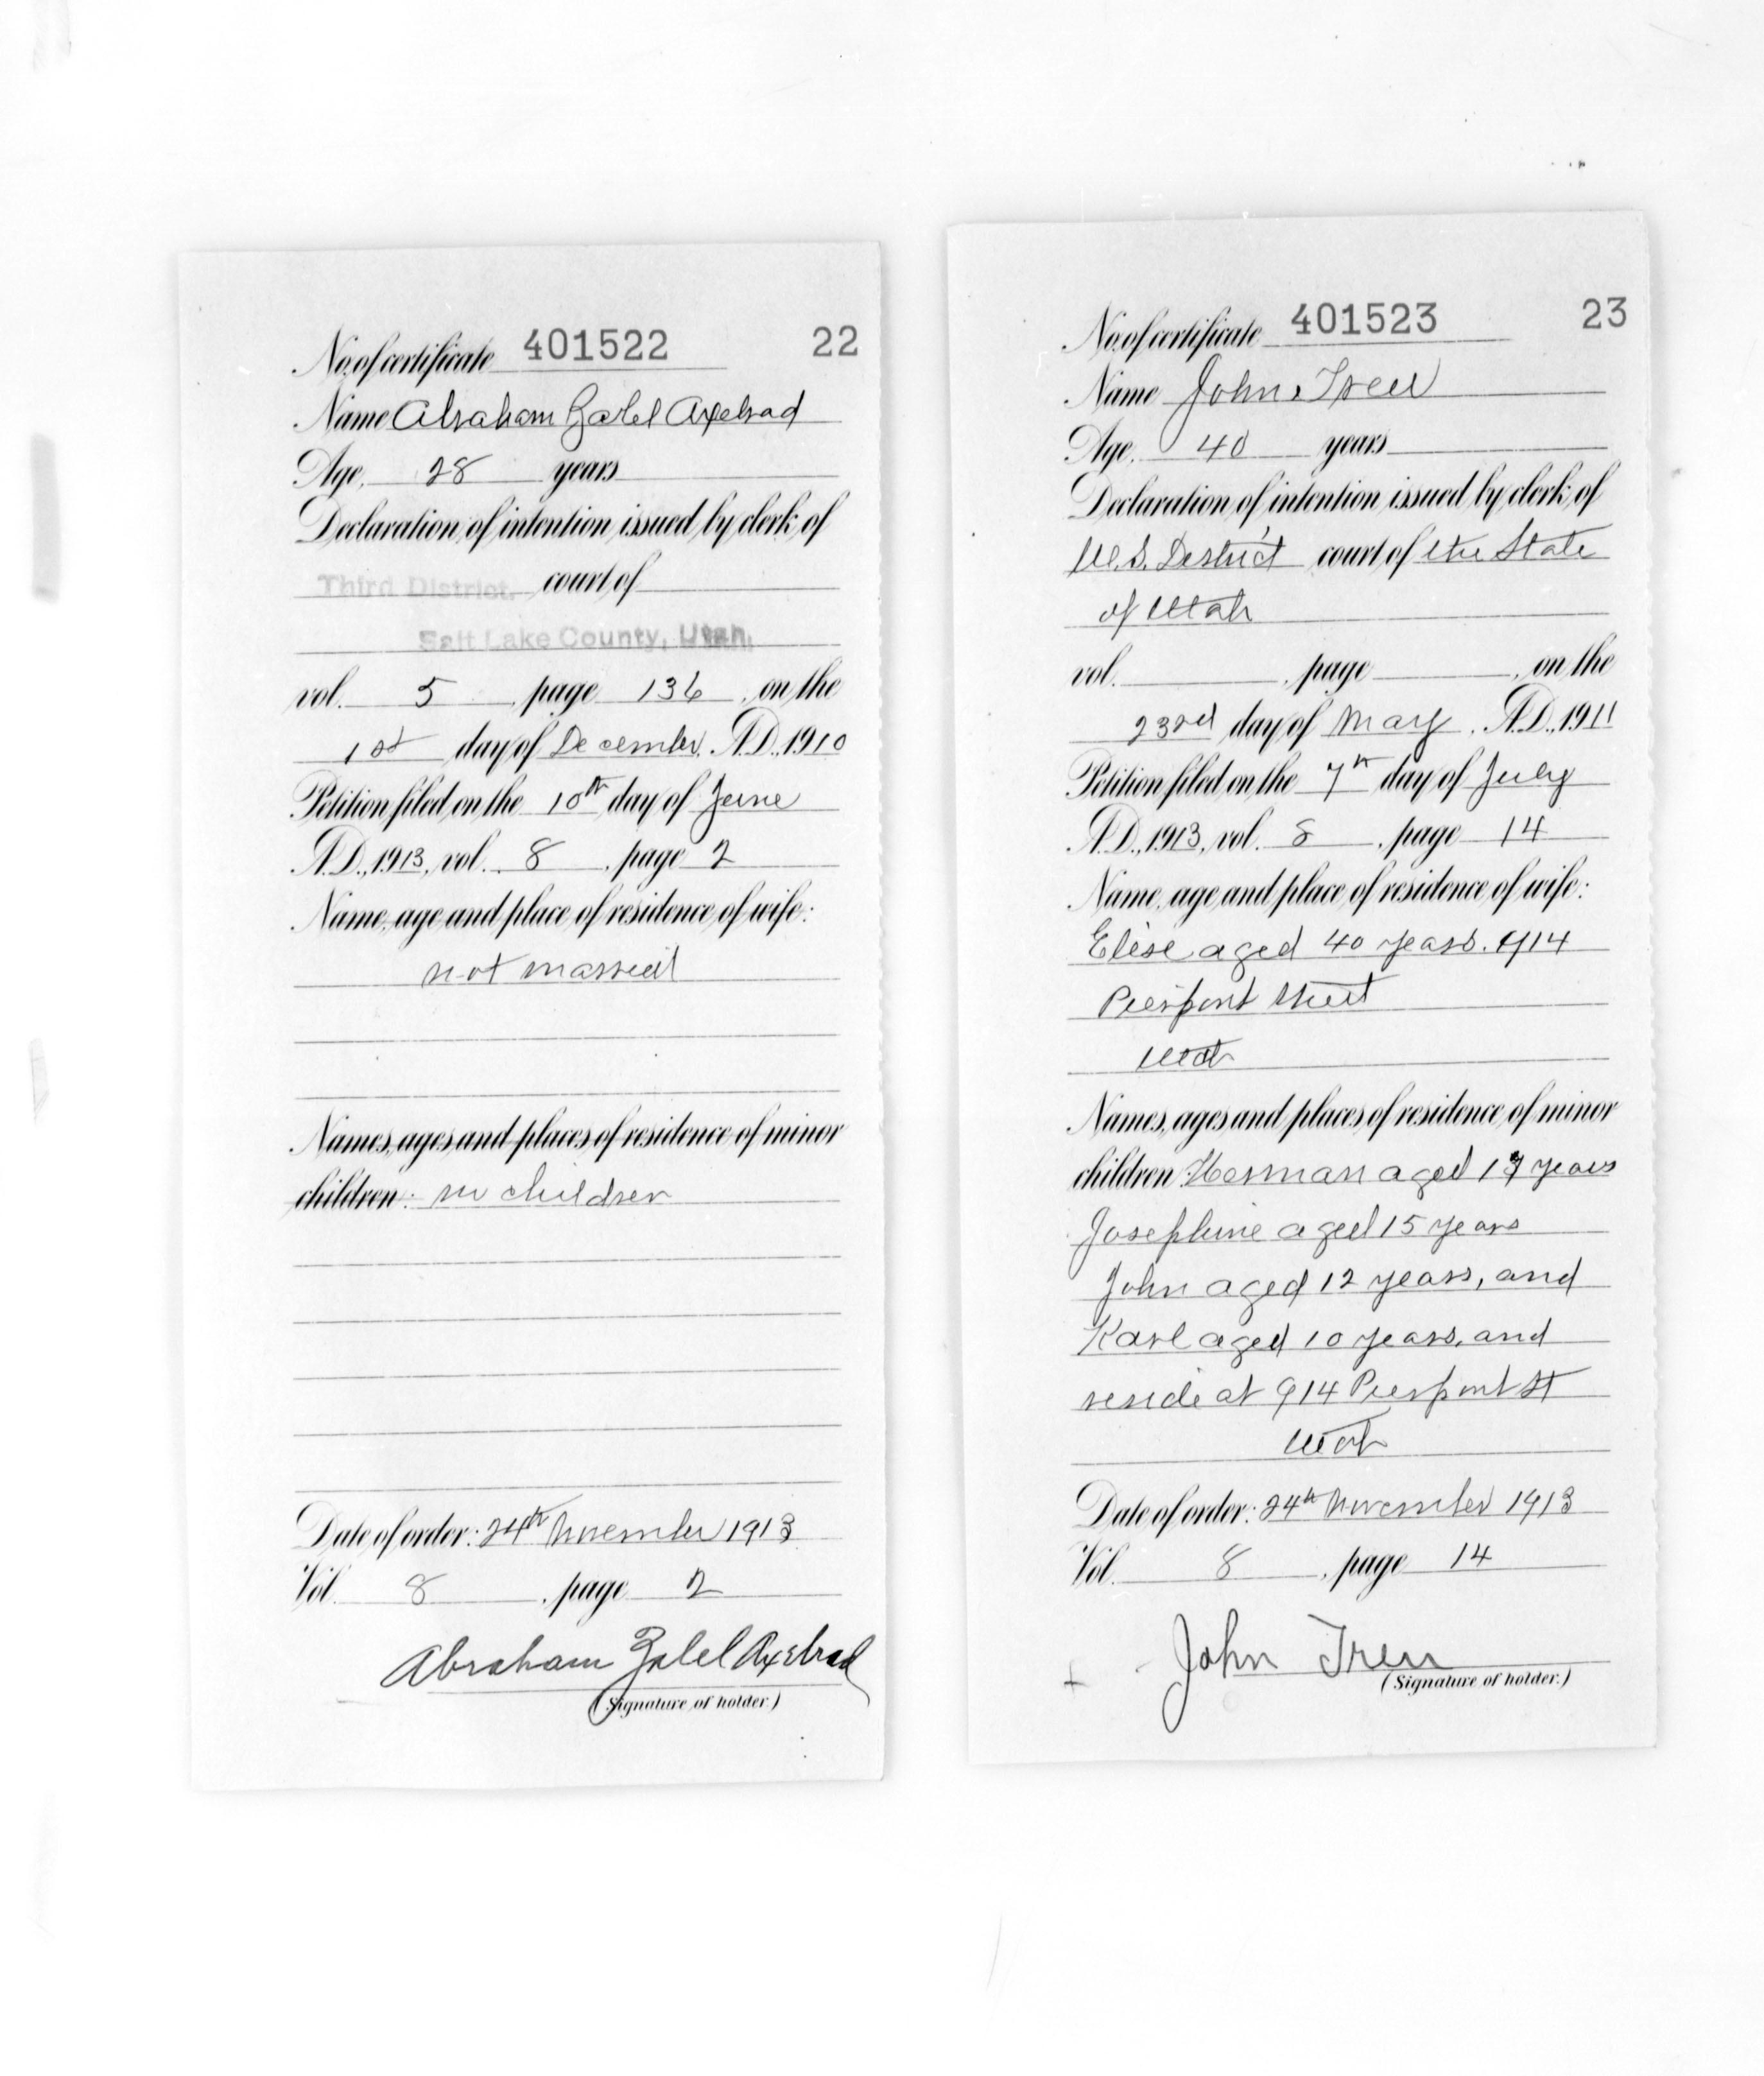 No. of certificate 401522 22
Name Abraham Zalel Axelrad
Age, 28 years
Declaration of intention issued by clerk of
Third District. court of
Salt Lake County, Utah.
vol. 5, page 136, on the
1st day of December, A.D. 1910
Petition filed on the 10th day of June
A.D., 1913, vol. 8, page 2
Name, age and place of residence of wife:
not married
Names, ages and places of residence of minor
children: no children
Date of order: 24th November 1913
Vol. 8, page 2
Abraham Zalel Axelrad
(Signature of holder.)
No. of certificate 401523 23
Name John Treu
Age, 40 years
Declaration of intention issued by clerk of
U.S. District court of the State
of Utah
vol. , page , on the
23rd day of May, A.D., 1911
Petition filed on the 7th day of July
A.D., 1913, vol. 8, page 14
Name, age and place of residence of wife:
Elise aged 40 years. 914
Pierpont Street
Utah
Names, ages and places of residence of minor
children Herman aged 17 years
Josephine aged 15 years
John aged 12 years, and
Karl aged 10 years, and
reside at 914 Pierpont St
Utah
Date of order: 24th November 1913
Vol. 8, page 14
John Treu
(Signature of holder.)